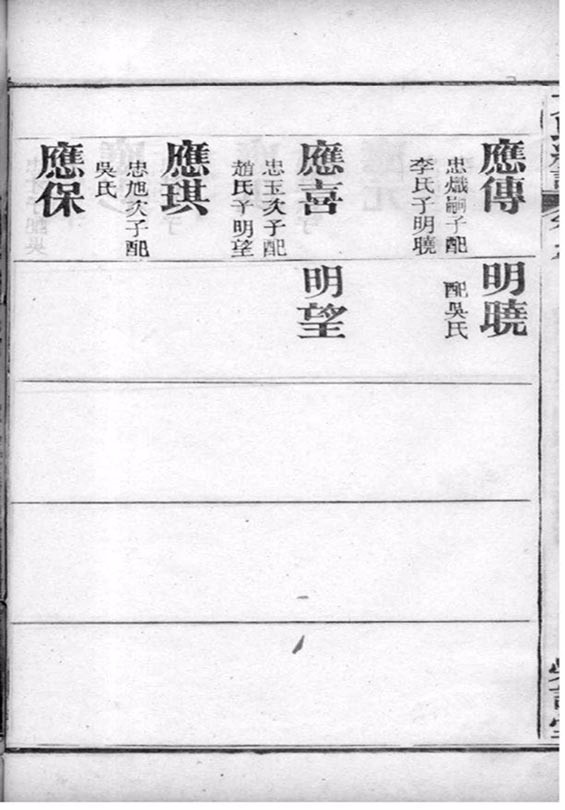 應傳
忠熾嗣子配
李氏子明曉
應喜
忠玉次子配
趙氏子明望
應琪
忠旭次子配
吳氏
應保
明曉
配吳氏
明望